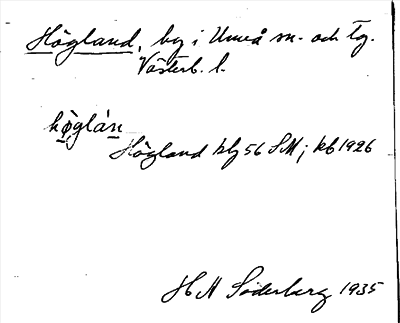 Högland, by i Umeå sn. och tg.
Västerb. l.
hö̀glán
Högland blg 56 SM; kb 1926
H M Söderberg 1935